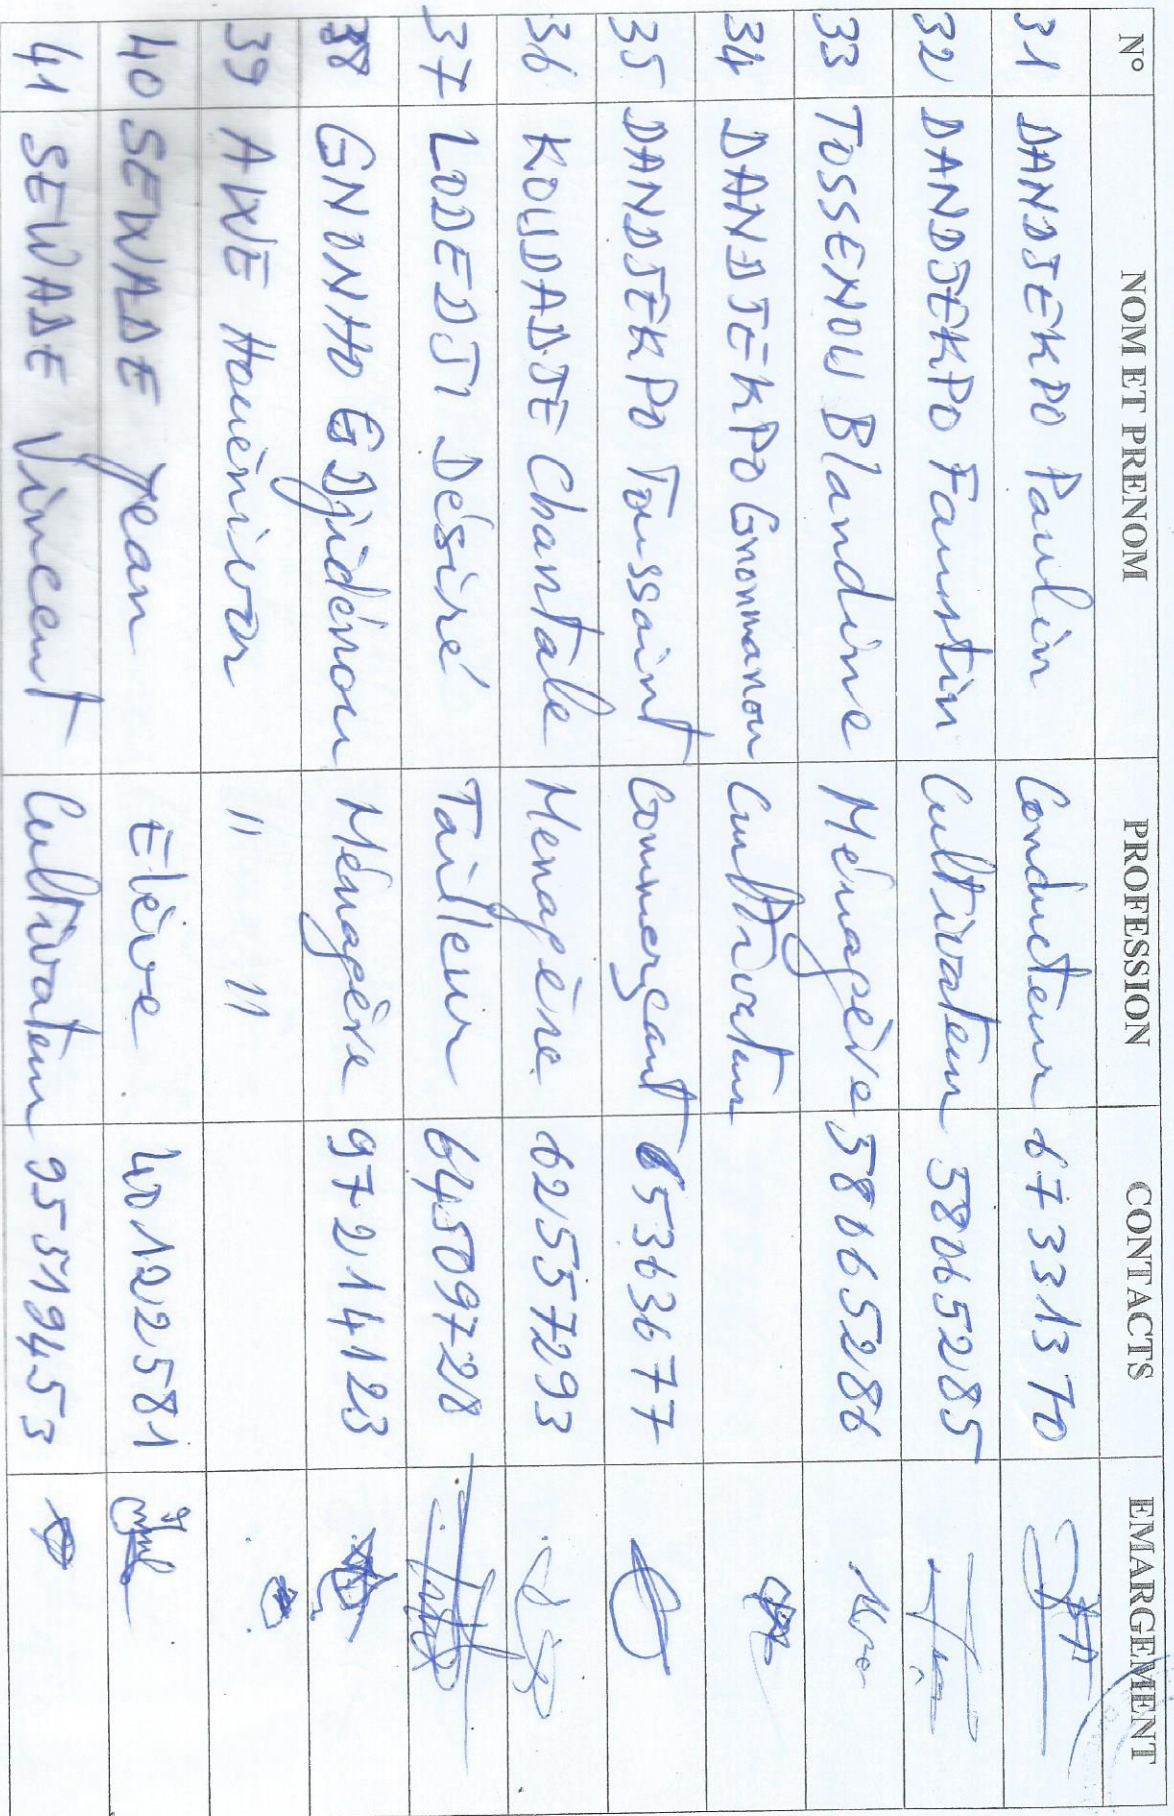 N° NOM ET PRENOM PROFESSION CONTACTS EMARGEMENT
31 DANDJEKPO Paulin Conducteur 67331370
32 DANDJEKPO Faustin Cultivateur 58065285
33 TOSSENOU Blandine Ménagère 58065286
34 DANDJEKPO Gnonmanou Cultivateur
35 DANDJEKPO Toussaint Commerçant 65363677
36 KOUDADJE Chantale Menagère 62557293
37 LODEDJI Désiré Tailleur 64509728
38 GNONHO GDjidénou Ménagère 97214123
39 AWE Houénivon " "
40 SEWADE Jean Elève 40122581
41 SEWADE Vincent Cultivateur 95519453